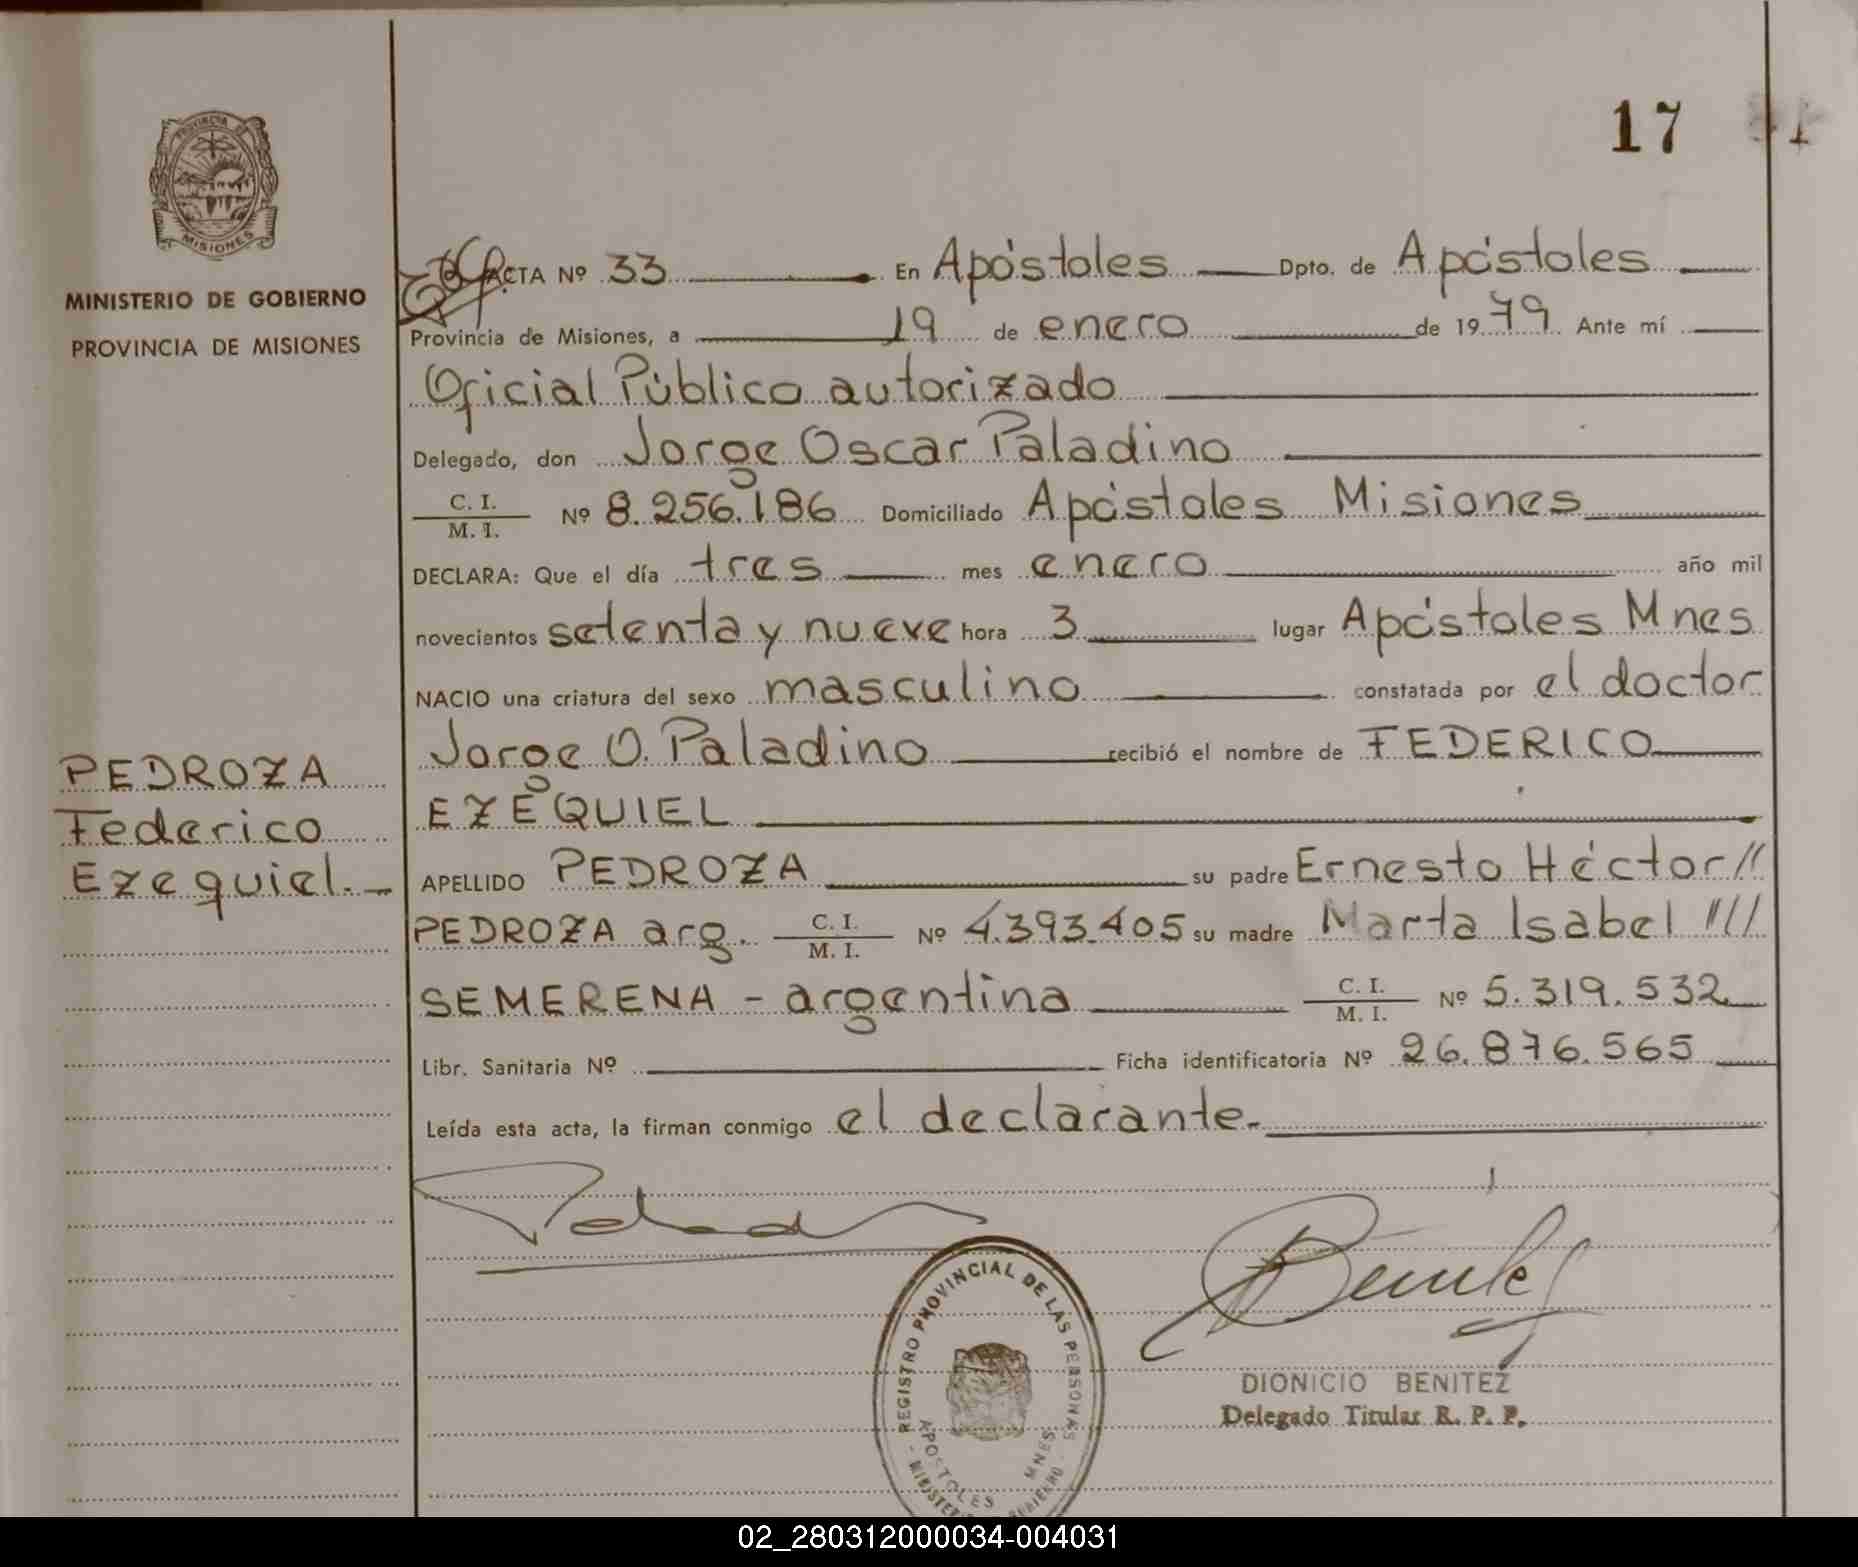 17
PROVINCIA DE
MISIONES
MINISTERIO DE GOBIERNO
PROVINCIA DE MISIONES
ACTA Nº 33 En Apóstoles Dpto. de Apóstoles
Provincia de Misiones, a 19 de enero de 1979 Ante mí
Oficial Público autorizado
Delegado, don Jorge Oscar Paladino
C. I.
M. I. Nº 8.256.186 Domiciliado Apóstoles Misiones
DECLARA: Que el día tres mes enero año mil
novecientos setenta y nueve hora 3 lugar Apóstoles Mnes
NACIO una criatura del sexo masculino constatada por el doctor
Jorge O. Paladino recibió el nombre de FEDERICO
EZEQUIEL
APELLIDO PEDROZA su padre Ernesto Héctor //
PEDROZA arg. C. I. M. I. Nº 4.393.405 su madre Marta Isabel ////
SEMERENA - argentina C. I. M. I. Nº 5.319.532
Libr. Sanitaria Nº Ficha identificatoria Nº 26.876.565
Leída esta acta, la firman conmigo el declarante.
PEDROZA
Federico
Ezequiel.-
REGISTRO PROVINCIAL DE LAS PERSONAS
APOSTOLES MNES
DIONICIO BENITEZ
Delegado Titular R. P. P.
02_280312000034-004031